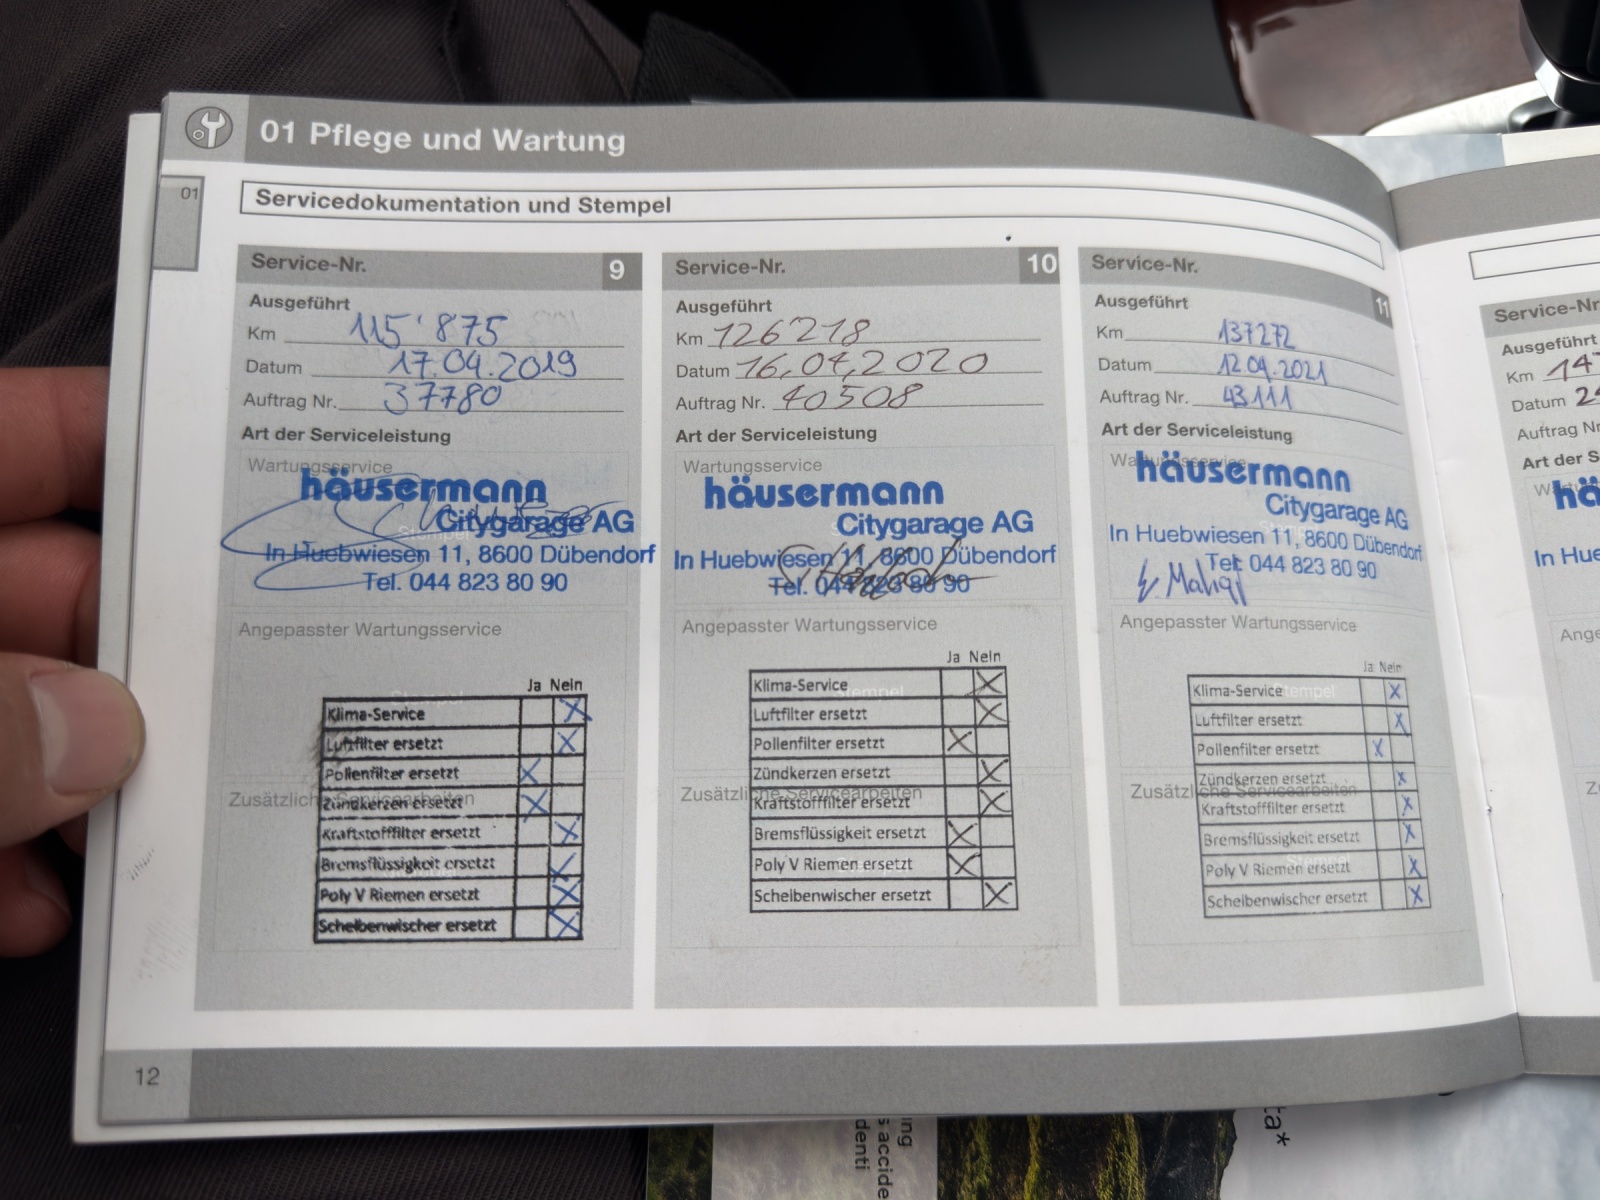 01 Pflege und Wartung
01
Servicedokumentation und Stempel
Service-Nr. 9
Ausgeführt
Km 115'875
Datum 17.04.2019
Auftrag Nr. 37780
Art der Serviceleistung
Wartungsservice
häusermann
Citygarage AG
Stempel
In Huebwiesen 11, 8600 Dübendorf
Tel. 044 823 80 90
Angepasster Wartungsservice
Ja Nein
Stempel
Klima-Service X
Luftfilter ersetzt X
Pollenfilter ersetzt X
Zusätzliche Servicearbeiten
Zündkerzen ersetzt X
Kraftstofffilter ersetzt X
Bremsflüssigkeit ersetzt X
Poly V Riemen ersetzt X
Scheibenwischer ersetzt X
Service-Nr. 10
Ausgeführt
Km 126218
Datum 16.04.2020
Auftrag Nr. 40508
Art der Serviceleistung
Wartungsservice
häusermann
Citygarage AG
In Huebwiesen 11, 8600 Dübendorf
Tel. 044 823 80 90
Angepasster Wartungsservice
Ja Nein
Klima-Service X
Stempel
Luftfilter ersetzt X
Pollenfilter ersetzt X
Zündkerzen ersetzt X
Zusätzliche Servicearbeiten
Kraftstofffilter ersetzt X
Bremsflüssigkeit ersetzt X
Poly V Riemen ersetzt X
Scheibenwischer ersetzt X
Service-Nr. 11
Ausgeführt
Km 137272
Datum 12.04.2021
Auftrag Nr. 43111
Art der Serviceleistung
Wartungsservice
häusermann
Citygarage AG
In Huebwiesen 11, 8600 Dübendorf
Tel. 044 823 80 90
Angepasster Wartungsservice
Ja Nein
Klima-Service X
Stempel
Luftfilter ersetzt X
Pollenfilter ersetzt X
Zündkerzen ersetzt X
Zusätzliche Servicearbeiten
Kraftstofffilter ersetzt X
Bremsflüssigkeit ersetzt X
Poly V Riemen ersetzt X
Stempel
Scheibenwischer ersetzt X
12
Service-Nr
Ausgeführt
Km 14
Datum 2
Auftrag Nr
Art der S
hä
In Hue
Ange
ta*
ng
s accide
denti